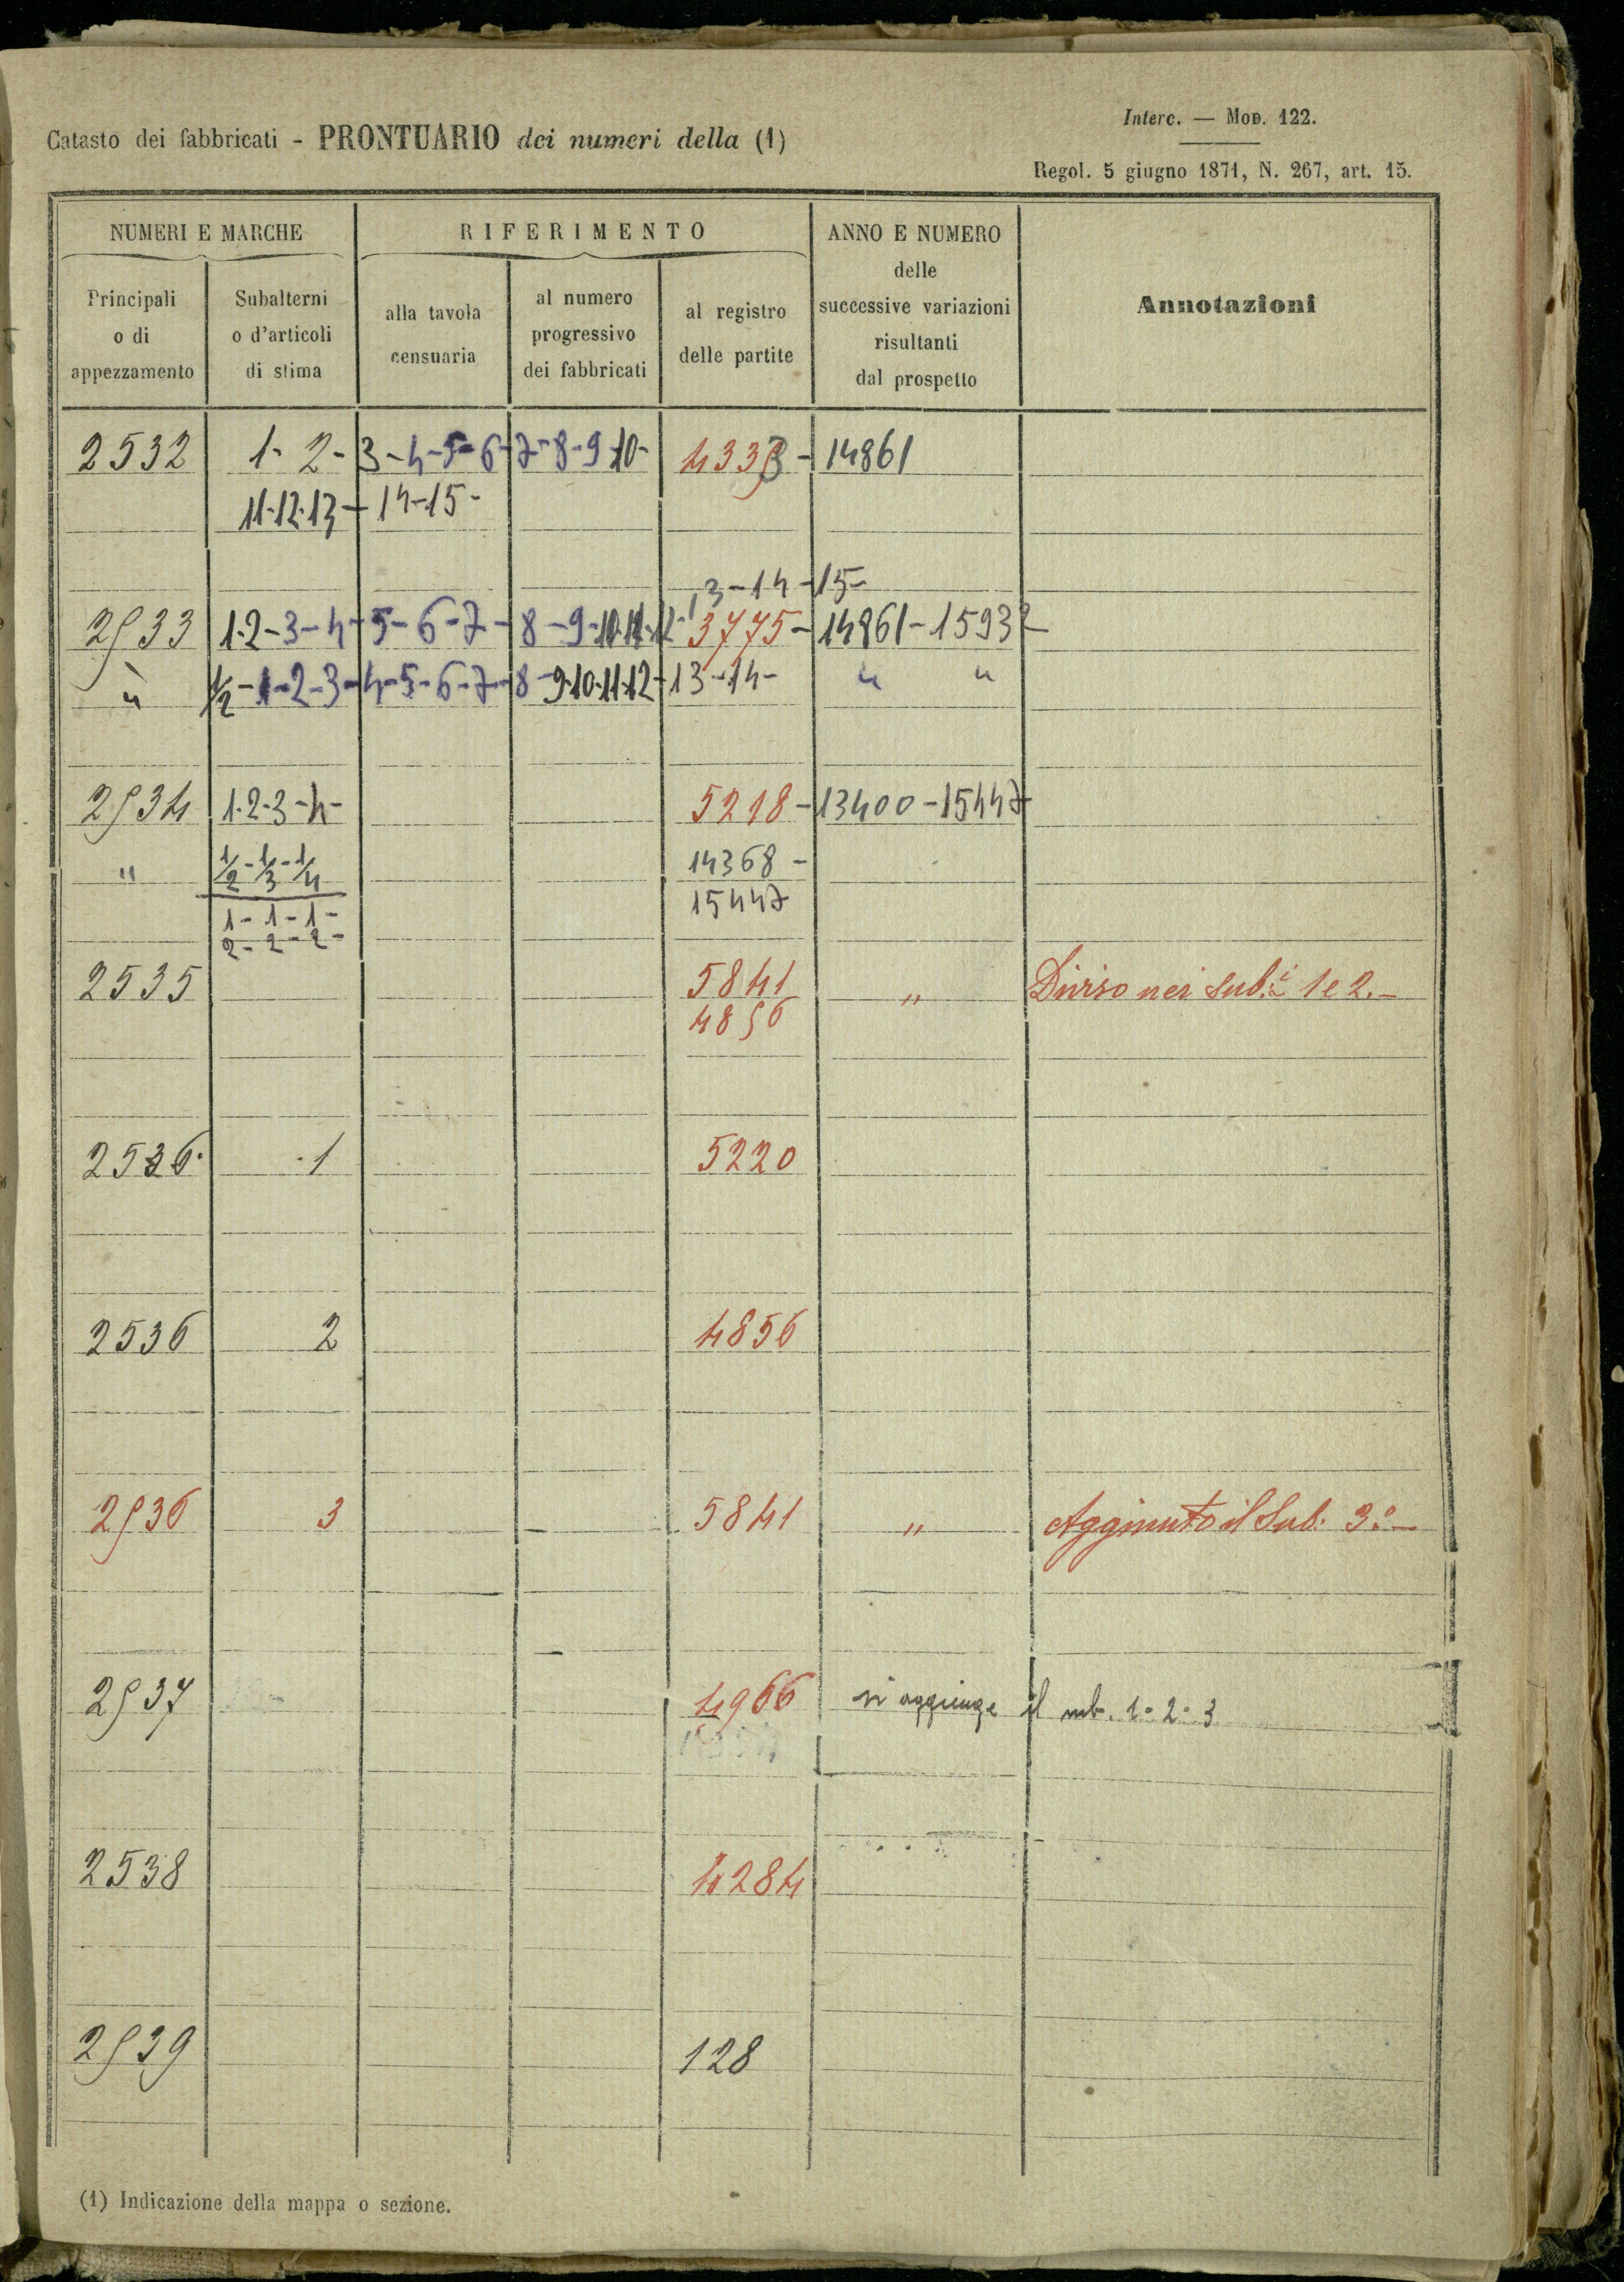 Interc. — Mod. 122.
Catasto dei fabbricati - PRONTUARIO dei numeri della (1)
Regol. 5 giugno 1871, N. 267, art. 15.
NUMERI E MARCHE
RIFERIMENTO
ANNO E NUMERO
delle
successive variazioni
risultanti
dal prospetto
Annotazioni
Principali
o di
appezzamento
Subalterni
o d'articoli
di stima
alla tavola
censuaria
al numero
progressivo
dei fabbricati
al registro
delle partite
2532 1- 2- 3-4-5-6-7-8-9-10- 4333 - 14861
11-12-13- 14-15-
13-14-15-
2533 1-2-3-4-5-6-7-8-9-10-11-12- 3775- 14861-15932
" 1/2-1-2-3-4-5-6-7-8-9-10-11-12-13-14- " "
2534 1-2-3-4- 5218-13400-15447
" 1/2-1/3-1/4 14368-
1-1-1- 15447
2-2-2-
2535 5841 " Diviso nei sub.i 1 e 2.-
4856
2536 1 5220
2536 2 4856
2536 3 5841 " Aggiunto il Sub. 3.o-
2537 4966 si aggiunge il sub. 1-2-3
2538 4284
2539 128
(1) Indicazione della mappa o sezione.